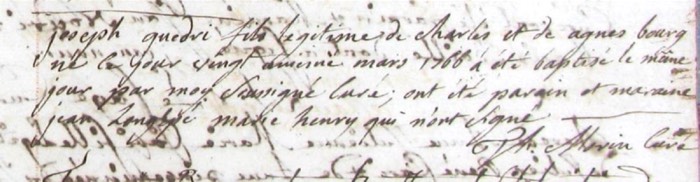 joseph guedri fils legitime de charles et de agnes bourg
né le jour vingt unieme mars 1766 a été baptisé le même
jour par moy soussigné curé; ont été parain et maraine
jean marie henry qui n'ont signé
Morin curé